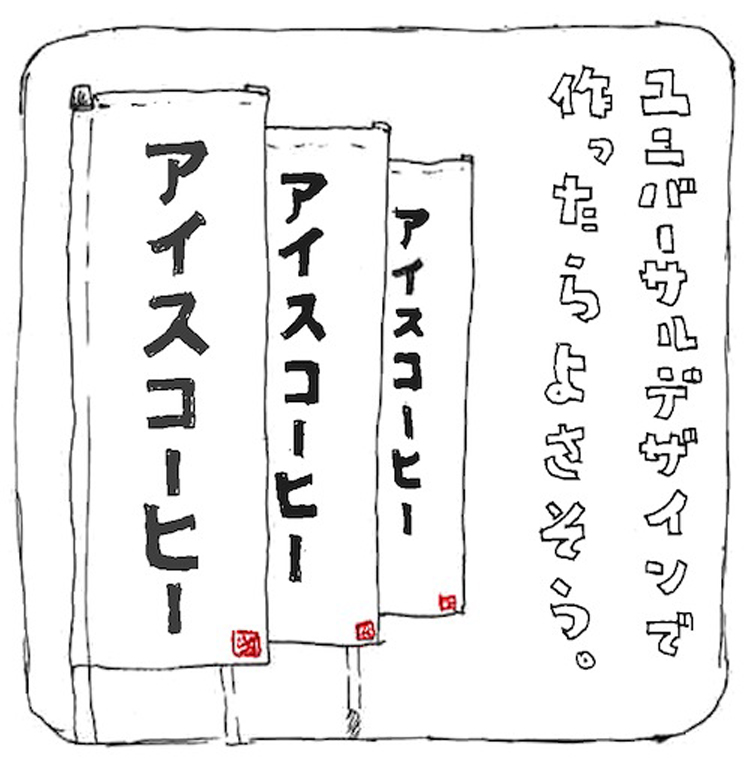 ユニバーサルデザインで
作ったらよさそう。
アイスコーヒー
アイスコーヒー
アイスコーヒー